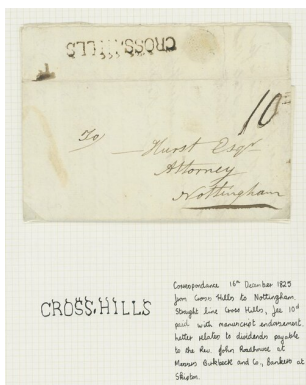 CROSS.HILLS
10
To
Hurst Esqr
Attorney
Nottingham
CROSS.HILLS
Correspondance 16th December 1829
from Cross Hills to Nottingham.
Straight line Cross Hills, fee 10d
paid with manuscript endorsement.
Letter relates to dividends payable
to the Rev. John Roadhouse at
Messrs Birkbeck and Co., Bankers at
Skipton.